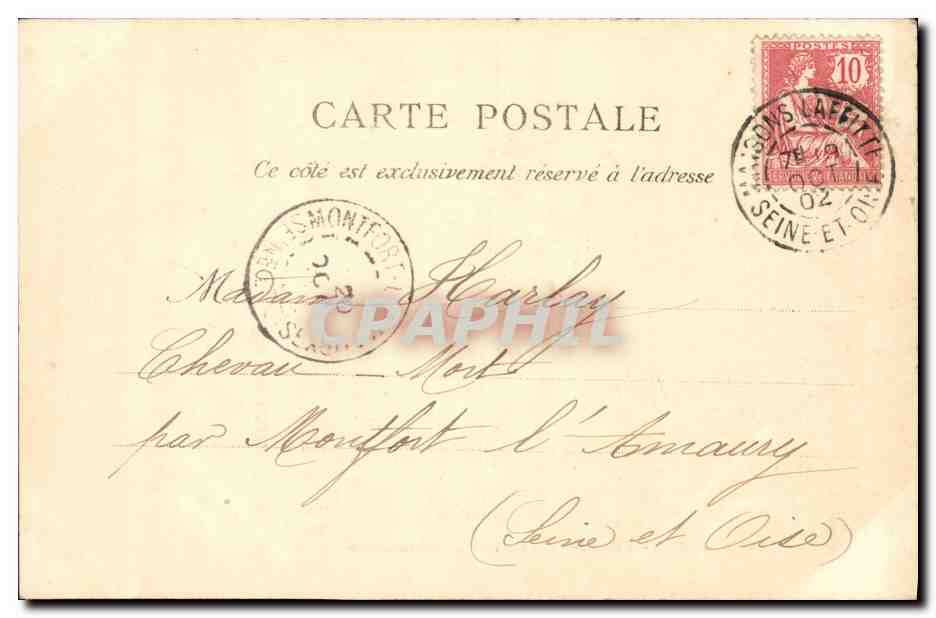 POSTES
10
MAISONS-LAFFITTE
7E 31
OCT
02
SEINE-ET-OISE
CARTE POSTALE
Ce côté est exclusivement réservé à l'adresse
MONTFORT
02
CPAPHIL
Madame Harlay
Chevau-Mort
par Montfort l'Amaury
(Seine et Oise)